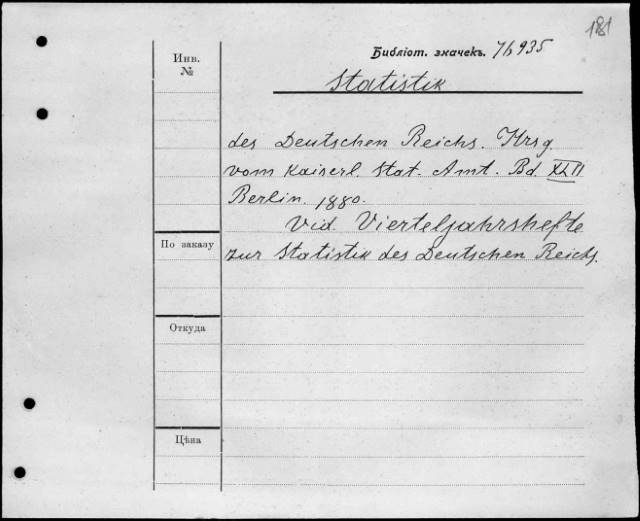 181
Инв. №
Библіот. значекъ. 76935
Statistik
des Deutschen Reichs. Hrsg.
vom Kaiserl. Stat. Amt. Bd. XLII
Berlin. 1880.
Vid. Vierteljahrshefte
zur Statistik des Deutschen Reichs.
По заказу
Откуда
Цѣна